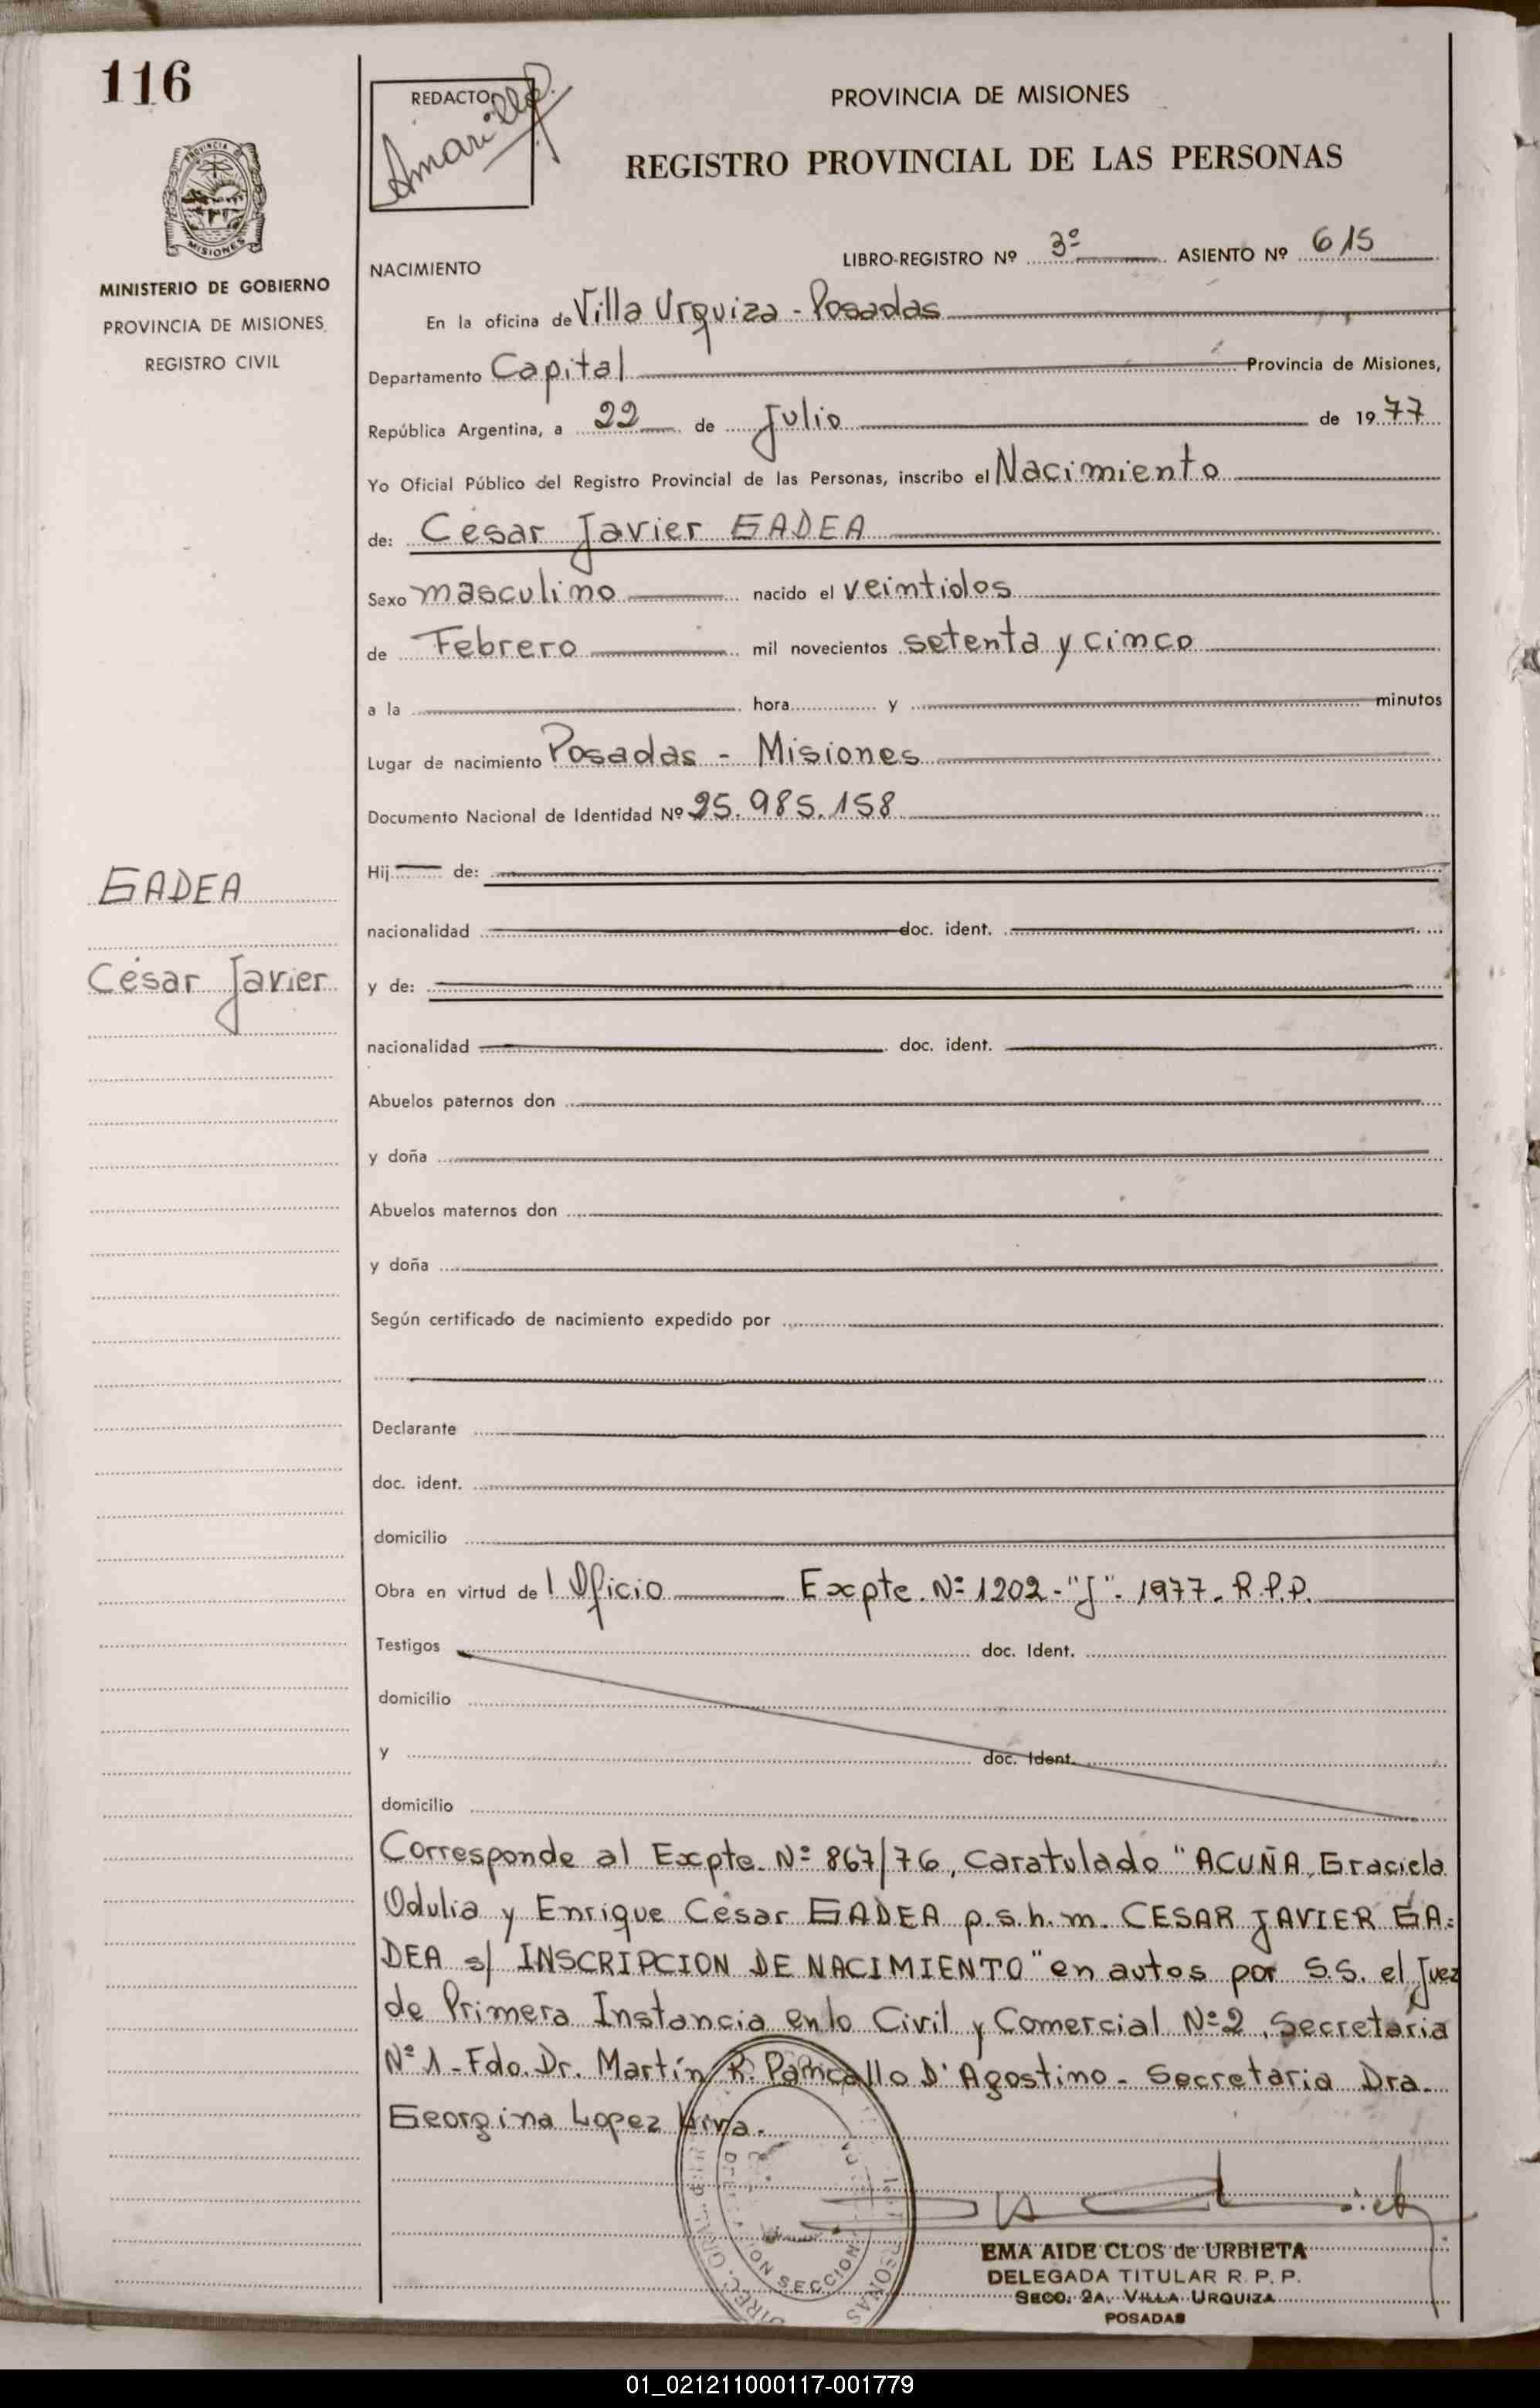 116
REDACTOR
Amarilla
PROVINCIA DE MISIONES
REGISTRO PROVINCIAL DE LAS PERSONAS
PROVINCIA DE
MISIONES
MINISTERIO DE GOBIERNO
PROVINCIA DE MISIONES
REGISTRO CIVIL
LIBRO-REGISTRO Nº 3º ASIENTO Nº 615
NACIMIENTO
En la oficina de Villa Urquiza - Posadas
Departamento Capital Provincia de Misiones,
República Argentina, a 22 de Julio de 1977
Yo Oficial Público del Registro Provincial de las Personas, inscribo el Nacimiento
de: César Javier GADEA
Sexo masculino nacido el veintidos
de Febrero mil novecientos setenta y cinco
a la hora y minutos
Lugar de nacimiento Posadas - Misiones
Documento Nacional de Identidad Nº 25.985.158
Hij de:
GADEA
nacionalidad doc. ident.
César Javier
y de:
nacionalidad doc. ident.
Abuelos paternos don
y doña
Abuelos maternos don
y doña
Según certificado de nacimiento expedido por
Declarante
doc. ident.
domicilio
Obra en virtud de 1 Oficio Expte. Nº 1202-"J"-1977- R.P.P.
Testigos doc. Ident.
domicilio
y doc. Ident.
domicilio
Corresponde al Expte. Nº 867/76, Caratulado "ACUÑA, Graciela
Odulia y Enrique César GADEA p.s.h.m. CESAR JAVIER GA=
DEA s/ INSCRIPCION DE NACIMIENTO" en autos por S.S. el Juez
de Primera Instancia en lo Civil y Comercial Nº 2, Secretaria
Nº 1 - Fdo. Dr. Martín R. D'Agostino - Secretaria Dra.
Georgina Lopez
SECCION
EMA AIDE CLOS de URBIETA
DELEGADA TITULAR R. P. P.
SECC. 2A. VILLA URQUIZA
POSADAS
01_021211000117-001779